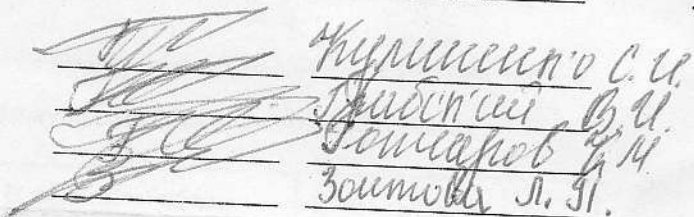 Кулиненко С.И.
Грибский В.И.
Гончаров И М
Зоитова Л.П.